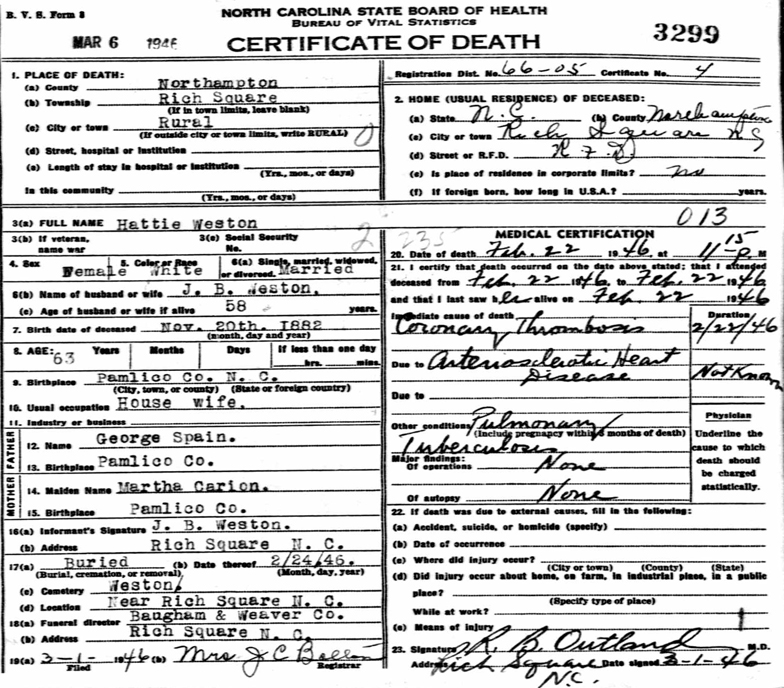 B. V. S. Form 8
NORTH CAROLINA STATE BOARD OF HEALTH
BUREAU OF VITAL STATISTICS
MAR 6 1946
CERTIFICATE OF DEATH
3299
1. PLACE OF DEATH:
(a) County Northampton
(b) Township Rich Square
(If in town limits, leave blank)
(c) City or town Rural
(If outside city or town limits, write RURAL)
(d) Street, hospital or institution
(e) Length of stay in hospital or institution
(Yrs., mos., or days)
In this community
(Yrs., mos., or days)
Registration Dist. No. 66-05 Certificate No. 4
2. HOME (USUAL RESIDENCE) OF DECEASED:
(a) State N.C. (b) County Northampton
(c) City or town Rich Square NC
(d) Street or R.F.D. RFD
(e) Is place of residence in corporate limits? no
(f) If foreign born, how long in U.S.A.? years.
013
3(a) FULL NAME Hattie Weston
3(b) If veteran, name war
3(c) Social Security No.
2 235
4. Sex Female
5. Color or Race White
6(a) Single, married, widowed, or divorced. Married
6(b) Name of husband or wife J. B. Weston.
(c) Age of husband or wife if alive 58 years.
7. Birth date of deceased Nov. 20th. 1882
(month, day and year)
8. AGE: 63 Years Months Days If less than one day
hrs. mins.
9. Birthplace Pamlico Co. N. C.
(City, town, or county) (State or foreign country)
10. Usual occupation House wife.
11. Industry or business
FATHER
12. Name George Spain.
13. Birthplace Pamlico Co.
MOTHER
14. Maiden Name Martha Carion.
15. Birthplace Pamlico Co.
16(a) Informant's Signature J. B. Weston.
(b) Address Rich Square N. C.
17(a) Buried (b) Date thereof 2/24/46.
(Burial, cremation, or removal) (Month, day, year)
(c) Cemetery Weston
(d) Location Near Rich Square N. C.
18(a) Funeral director Baugham & Weaver Co.
(b) Address Rich Square N. C.
19(a) 3-1- 1946 (b) Mrs J C
Filed Registrar
MEDICAL CERTIFICATION
20. Date of death Feb. 22 1946, at 11 15 P. M
21. I certify that death occurred on the date above stated; that I attended
deceased from Feb. 22 1946, to Feb. 22 1946
and that I last saw her alive on Feb. 22 1946
Immediate cause of death Duration
Coronary Thrombosis 2/22/46
Due to Arteriosclerotic Heart
Disease Not Known
Due to
Other conditions Pulmonary
(Include pregnancy within 3 months of death)
Tuberculosis
Major findings:
Of operations None
Of autopsy None
Physician
Underline the
cause to which
death should
be charged
statistically.
22. If death was due to external causes, fill in the following:
(a) Accident, suicide, or homicide (specify)
(b) Date of occurrence
(c) Where did injury occur?
(City or town) (County) (State)
(d) Did injury occur about home, on farm, in industrial place, in a public
place?
(Specify type of place)
While at work?
(e) Means of injury
23. Signature R. B. Outland M.D.
Address Rich Square Date signed 3-1-46
N.C.